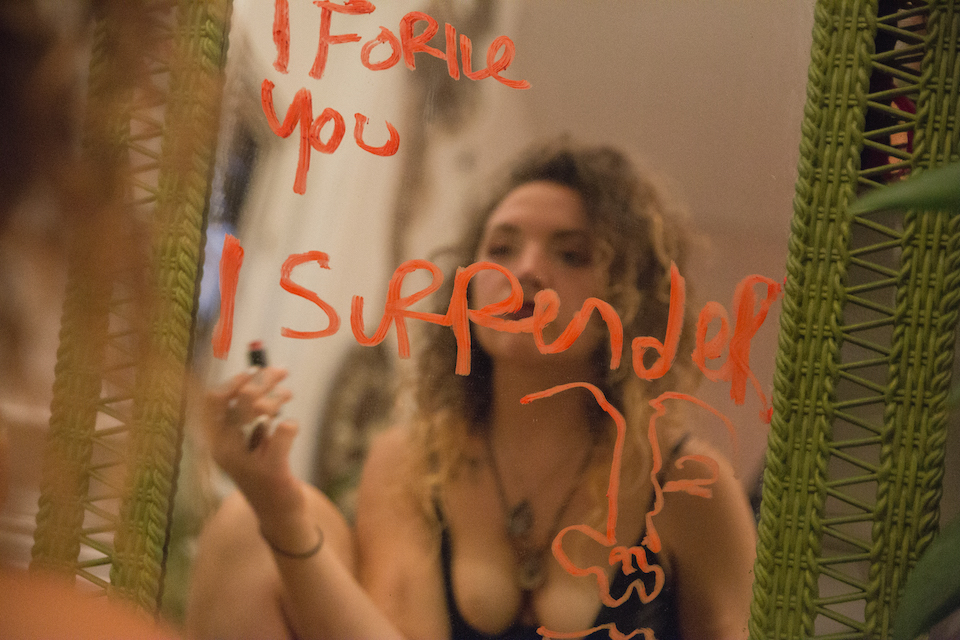 I FoRIVe
You
I SuRRendeR